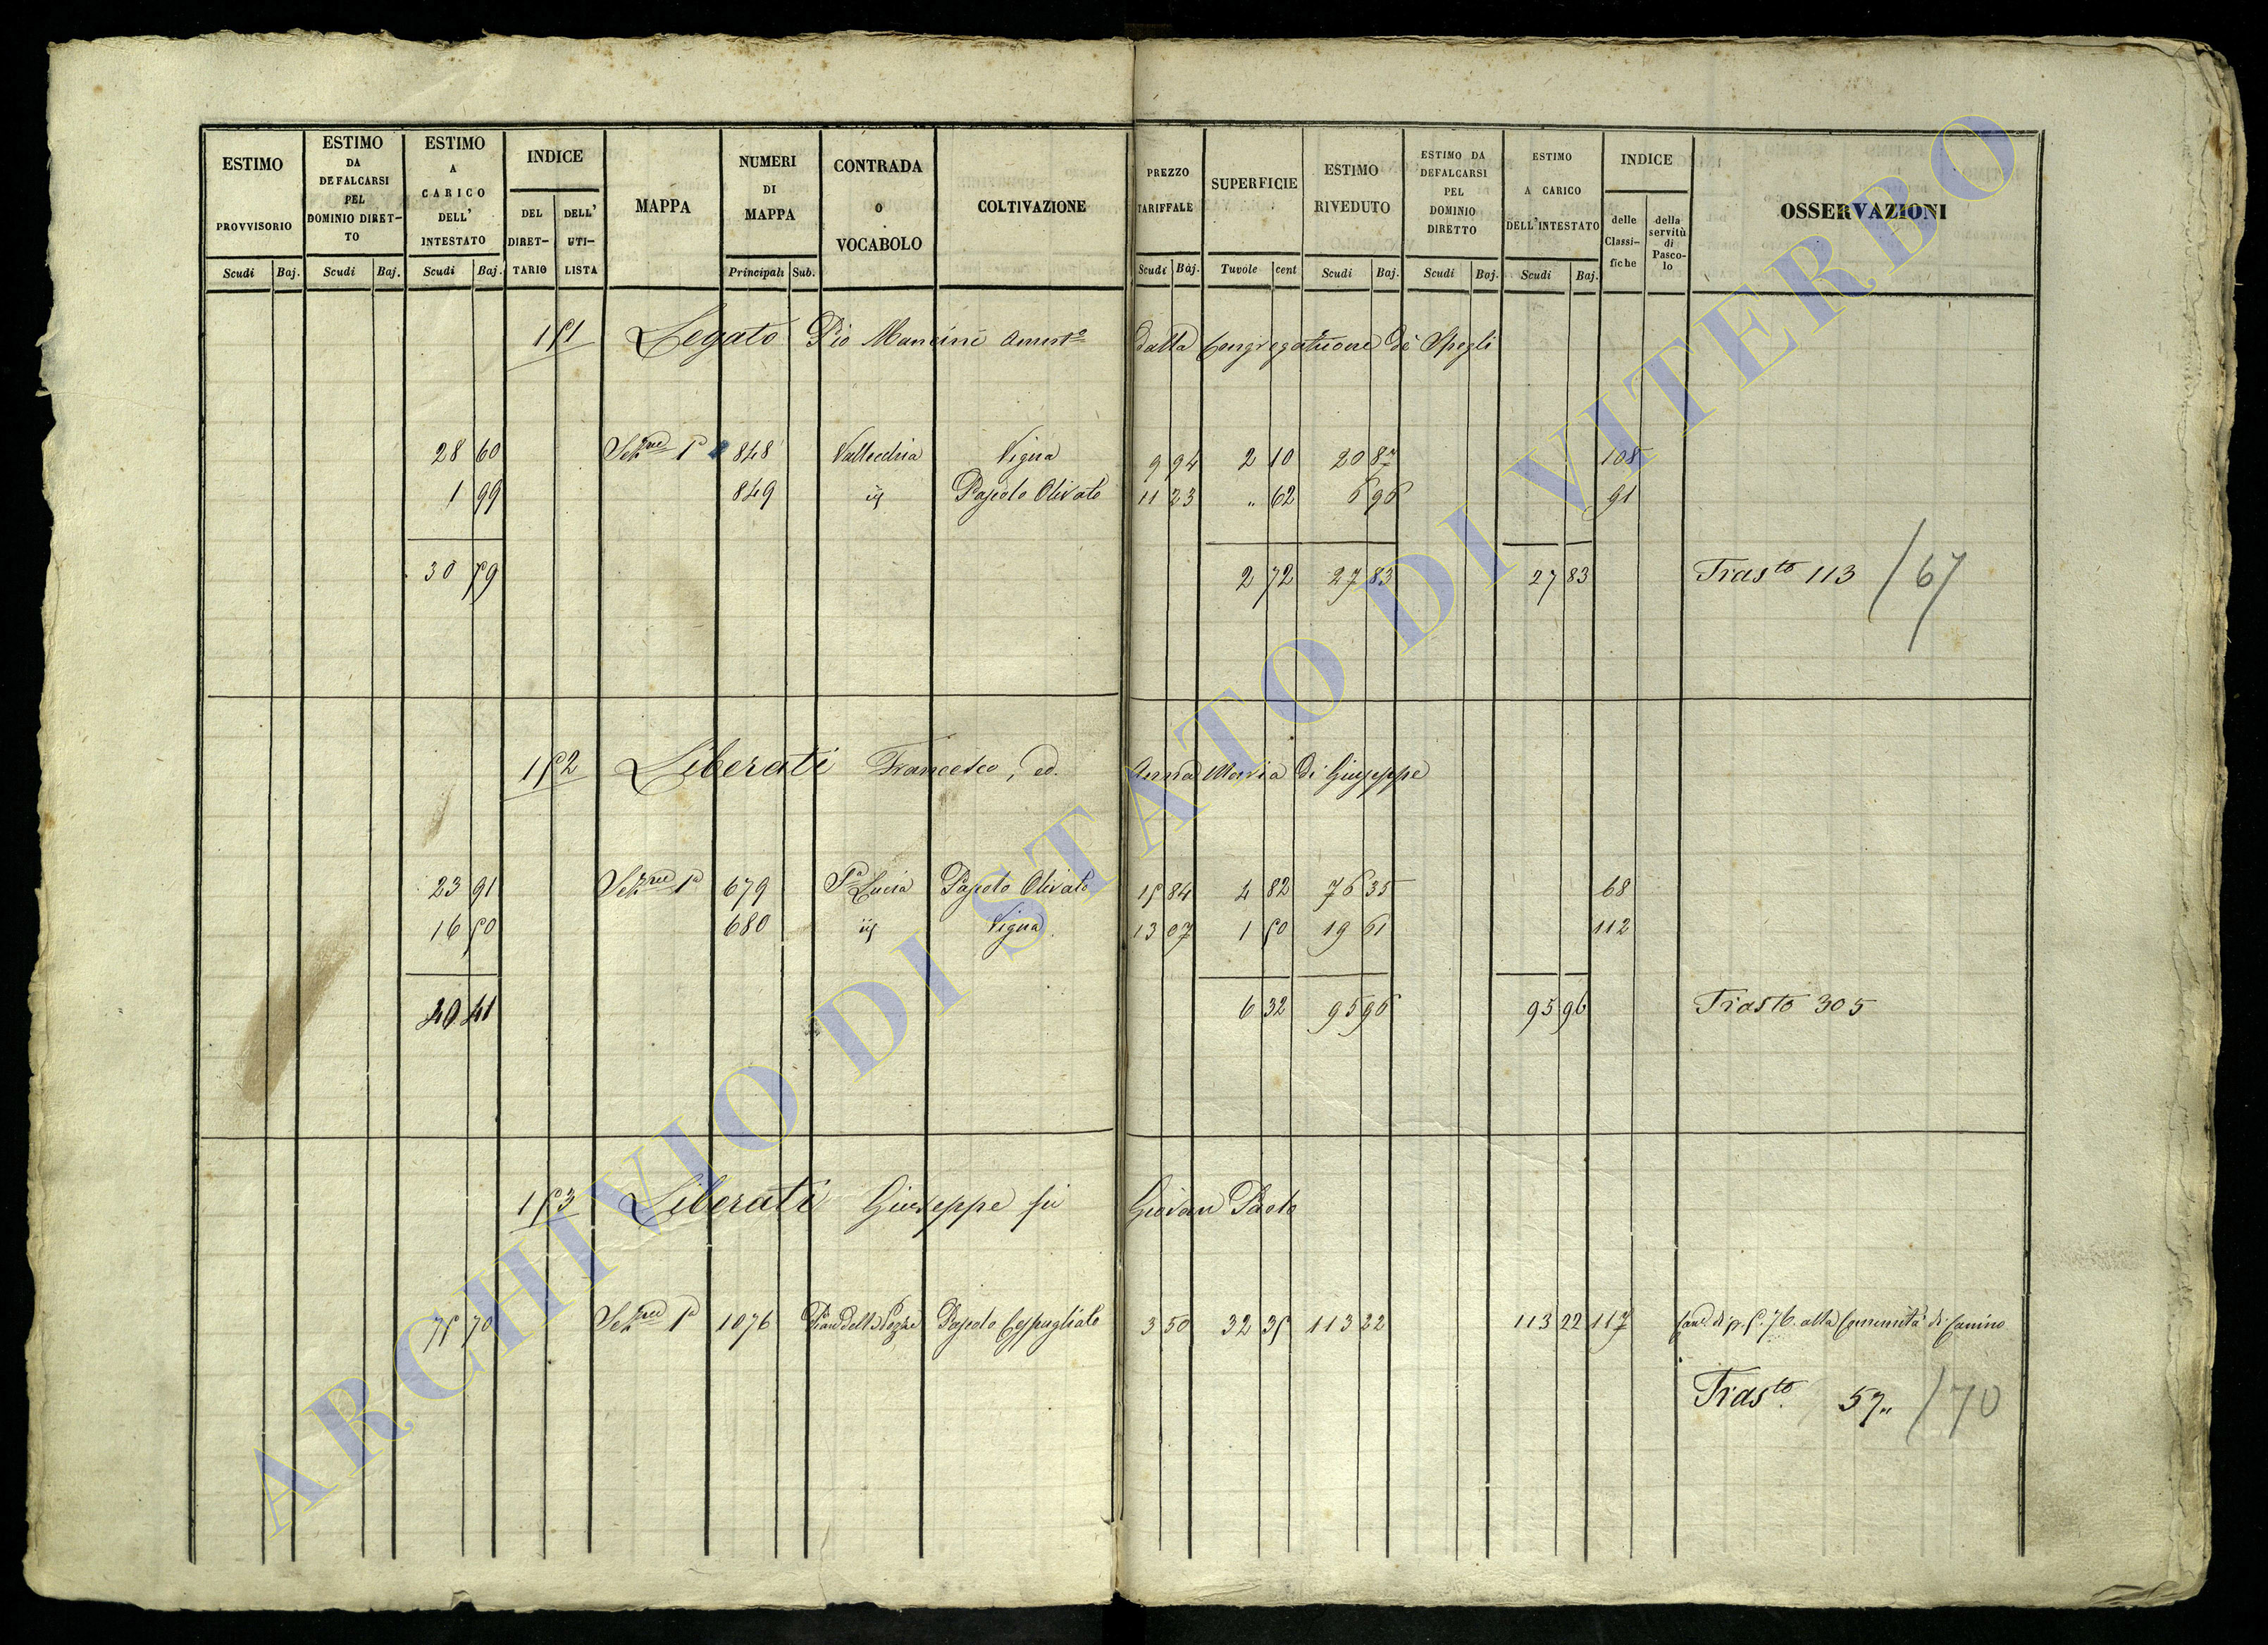 ESTIMO PROVVISORIO
ESTIMO DA DEFALCARSI PEL DOMINIO DIRET-TO
ESTIMO A CARICO DELL' INTESTATO
INDICE
DEL DIRET-TARIO
DELL' UTI-LISTA
MAPPA
NUMERI DI MAPPA
CONTRADA O VOCABOLO
COLTIVAZIONE
PREZZO TARIFFALE
SUPERFICIE
ESTIMO RIVEDUTO
ESTIMO DA DEFALCARSI PEL DOMINIO DIRETTO
ESTIMO A CARICO DELL'INTESTATO
INDICE
delle Classi-fiche
della servitù di Pasco-lo
OSSERVAZIONI
Scudi Baj. Scudi Baj. Scudi Baj. Principali Sub. Scudi Baj. Tavole cent Scudi Baj. Scudi Baj. Scudi Baj.
151 Legato Pio Mancini Ammto dalla Congregazione di Spegli
28 60 Sezne 1a 848 Vallecchia Vigna 9 94 2 10 20 87 108
1 99 849 iij Pascolo Olivato 11 23 " 62 6 96 91
30 59 2 72 27 83 27 83 Trasto 113 /67
152 Liberati Francesco, ed Anna Maria di Giuseppe
23 91 Sezne 1a 679 Sa Lucia Pascolo Olivato 15 84 4 82 76 35 68
16 50 680 iij Vigna 13 07 1 50 19 61 112
40 41 6 32 95 96 95 96 Trasto 305
153 Liberati Giuseppe fu Giovan Paolo
75 70 Sezne 1a 1076 Pian delle Pozze Pascolo Cespugliato 3 50 32 35 113 22 113 22 117 alla Comunità di Canino
Trasto. 57" /70
ARCHIVIO DI STATO DI VITERBO